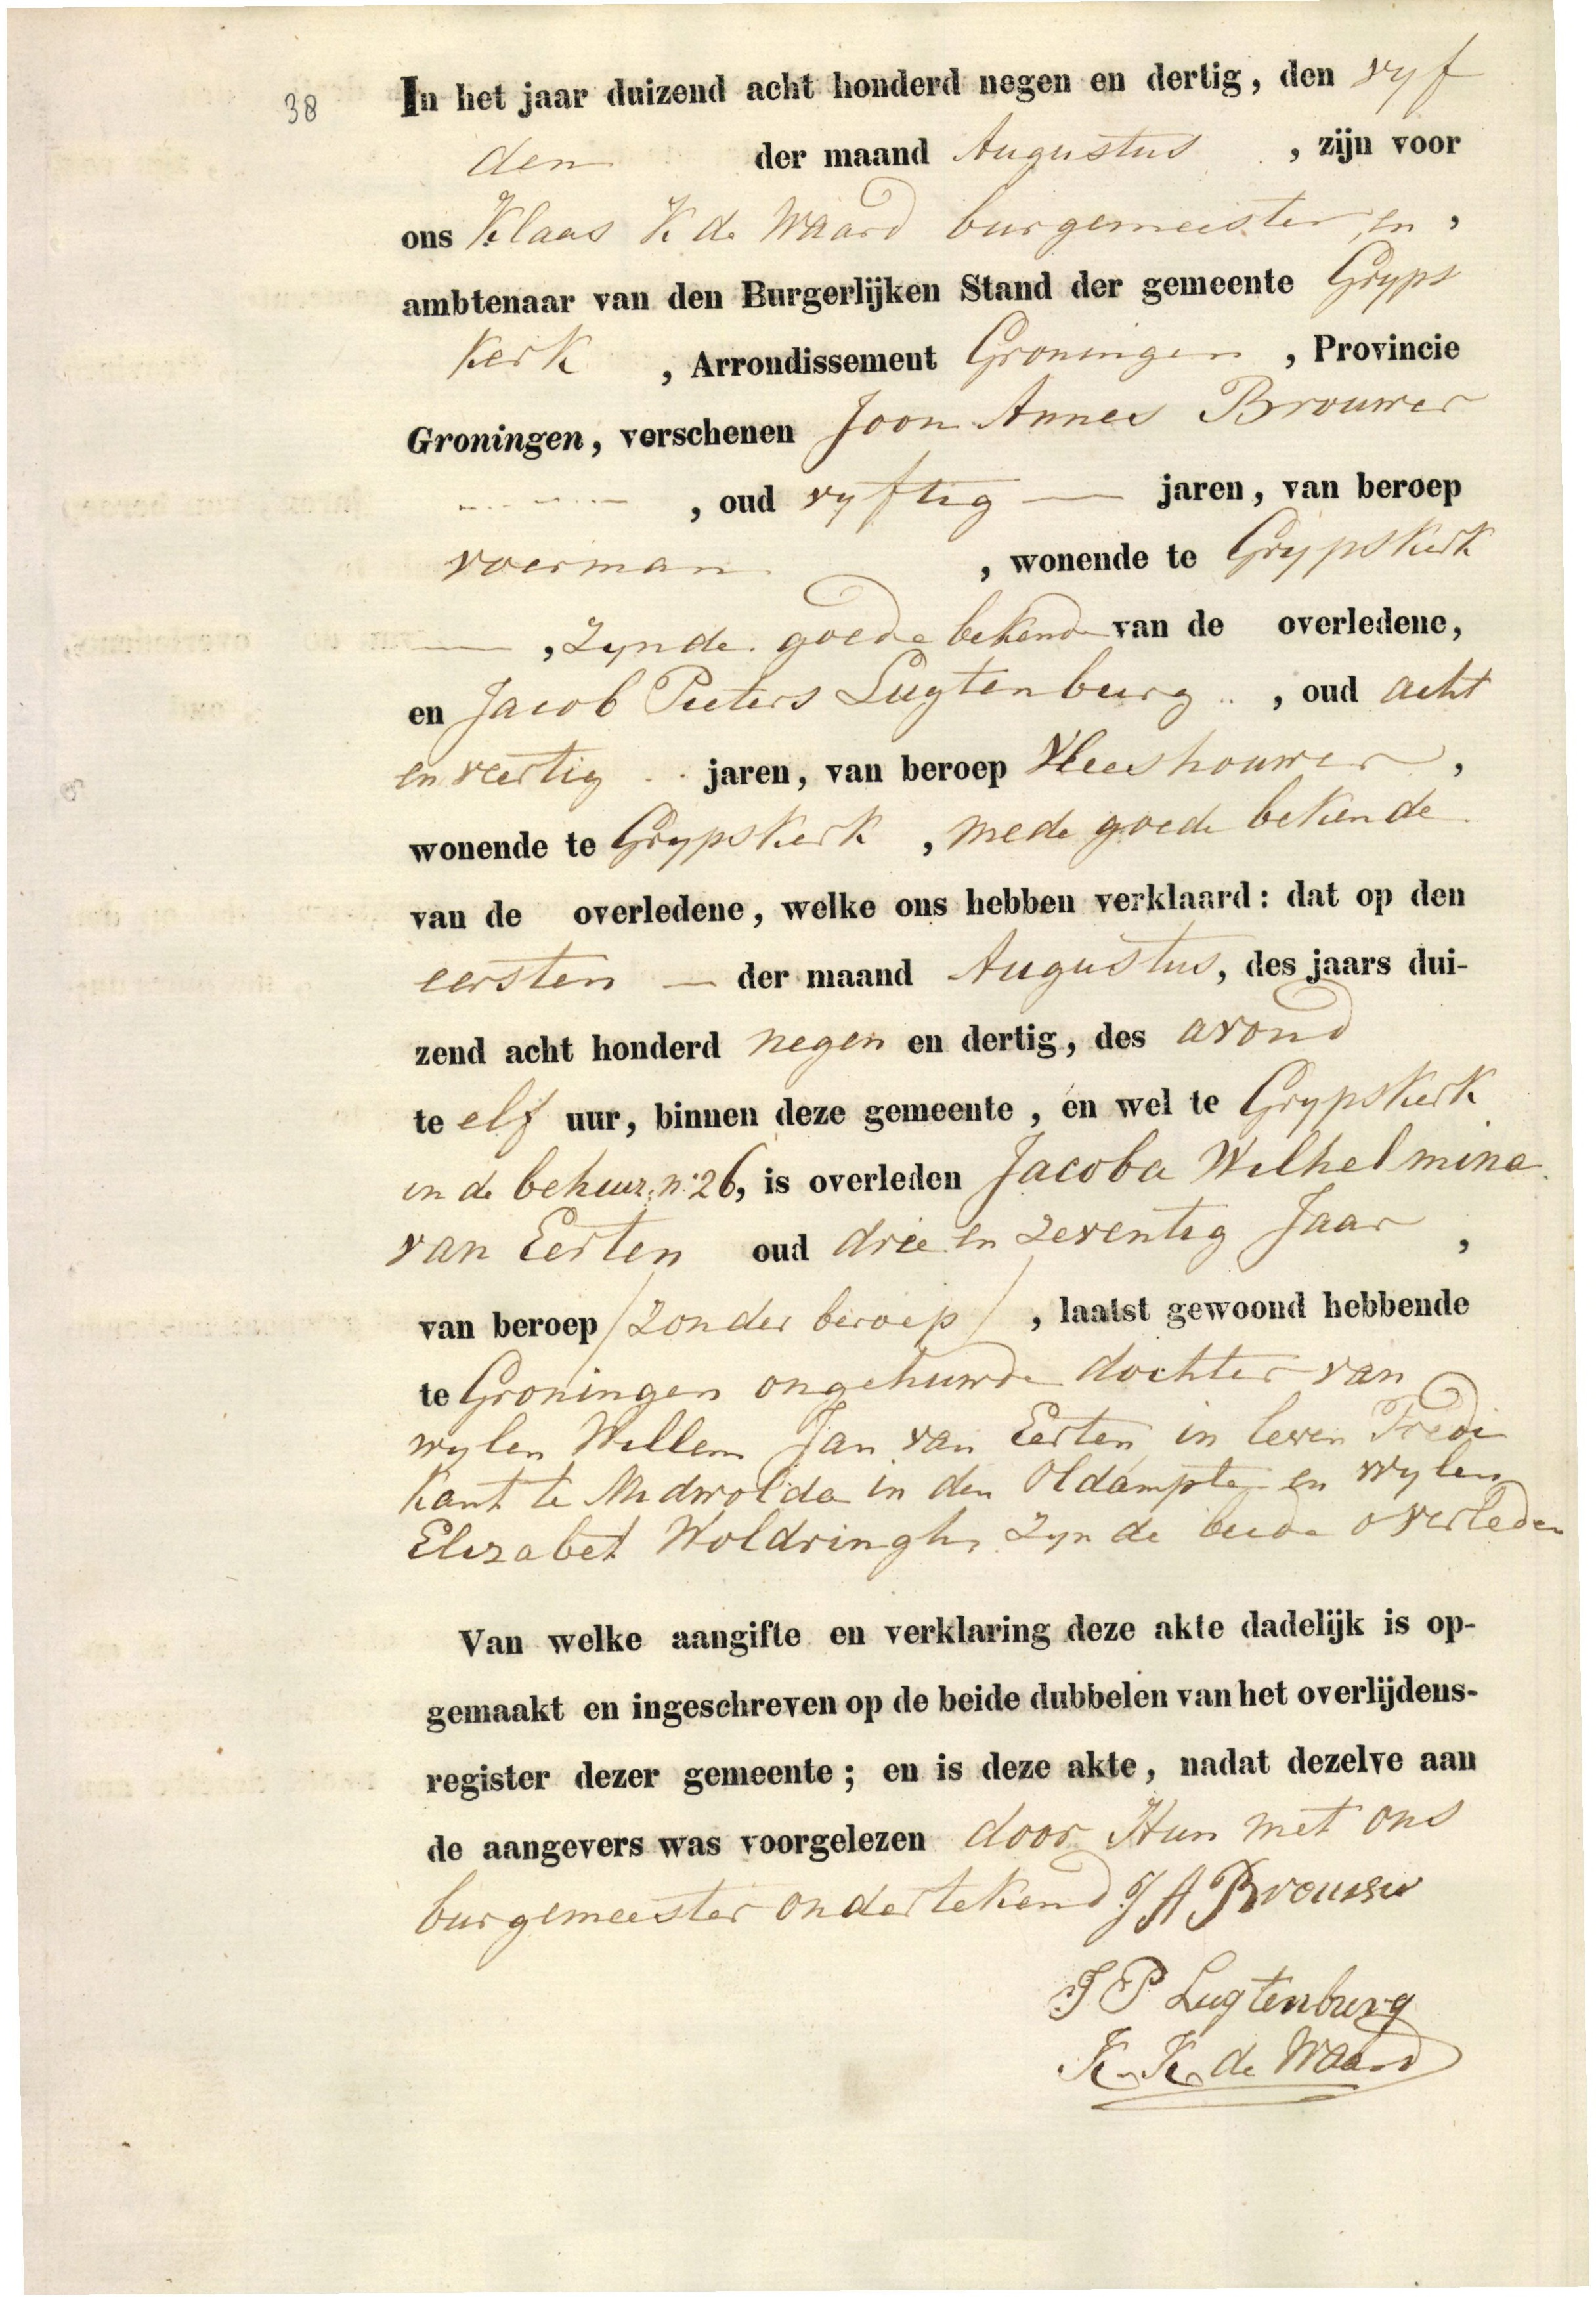 38
In het jaar duizend acht honderd negen en dertig, den vyf
den der maand Augustus, zijn voor
ons Klaas K de Waard burgemeester, en,
ambtenaar van den Burgerlijken Stand der gemeente Gryps
kerk, Arrondissement Groningen, Provincie
Groningen, verschenen Joon Annes Brouwer
, oud vyftig — jaren, van beroep
voerman, wonende te Grypskerk
—, zynde goede bekende van de overledene,
en Jacob Pieters Lugtenburg, oud acht
en veertig jaren, van beroep Vleeshouwer,
wonende te Grypskerk, mede goede bekende
van de overledene, welke ons hebben verklaard: dat op den
eersten — der maand Augustus, des jaars dui-
zend acht honderd negen en dertig, des avond
te elf uur, binnen deze gemeente, en wel te Grypskerk
in de behuiz: no 26, is overleden Jacoba Wilhelmina
van Eerten oud drie en zeventig Jaar,
van beroep / zonder beroep /, laatst gewoond hebbende
te Groningen ongehuwde dochter van
wylen Willem Jan van Eerten in leven Predi
kant te Midwolda in den Oldampte en wylen
Elizabet Woldringh, zynde beide overleden
Van welke aangifte en verklaring deze akte dadelijk is op-
gemaakt en ingeschreven op de beide dubbelen van het overlijdens-
register dezer gemeente; en is deze akte, nadat dezelve aan
de aangevers was voorgelezen door Hun met ons
burgemeester ondertekend J A Brouwer
J P Lugtenburg
K. K. de Waard